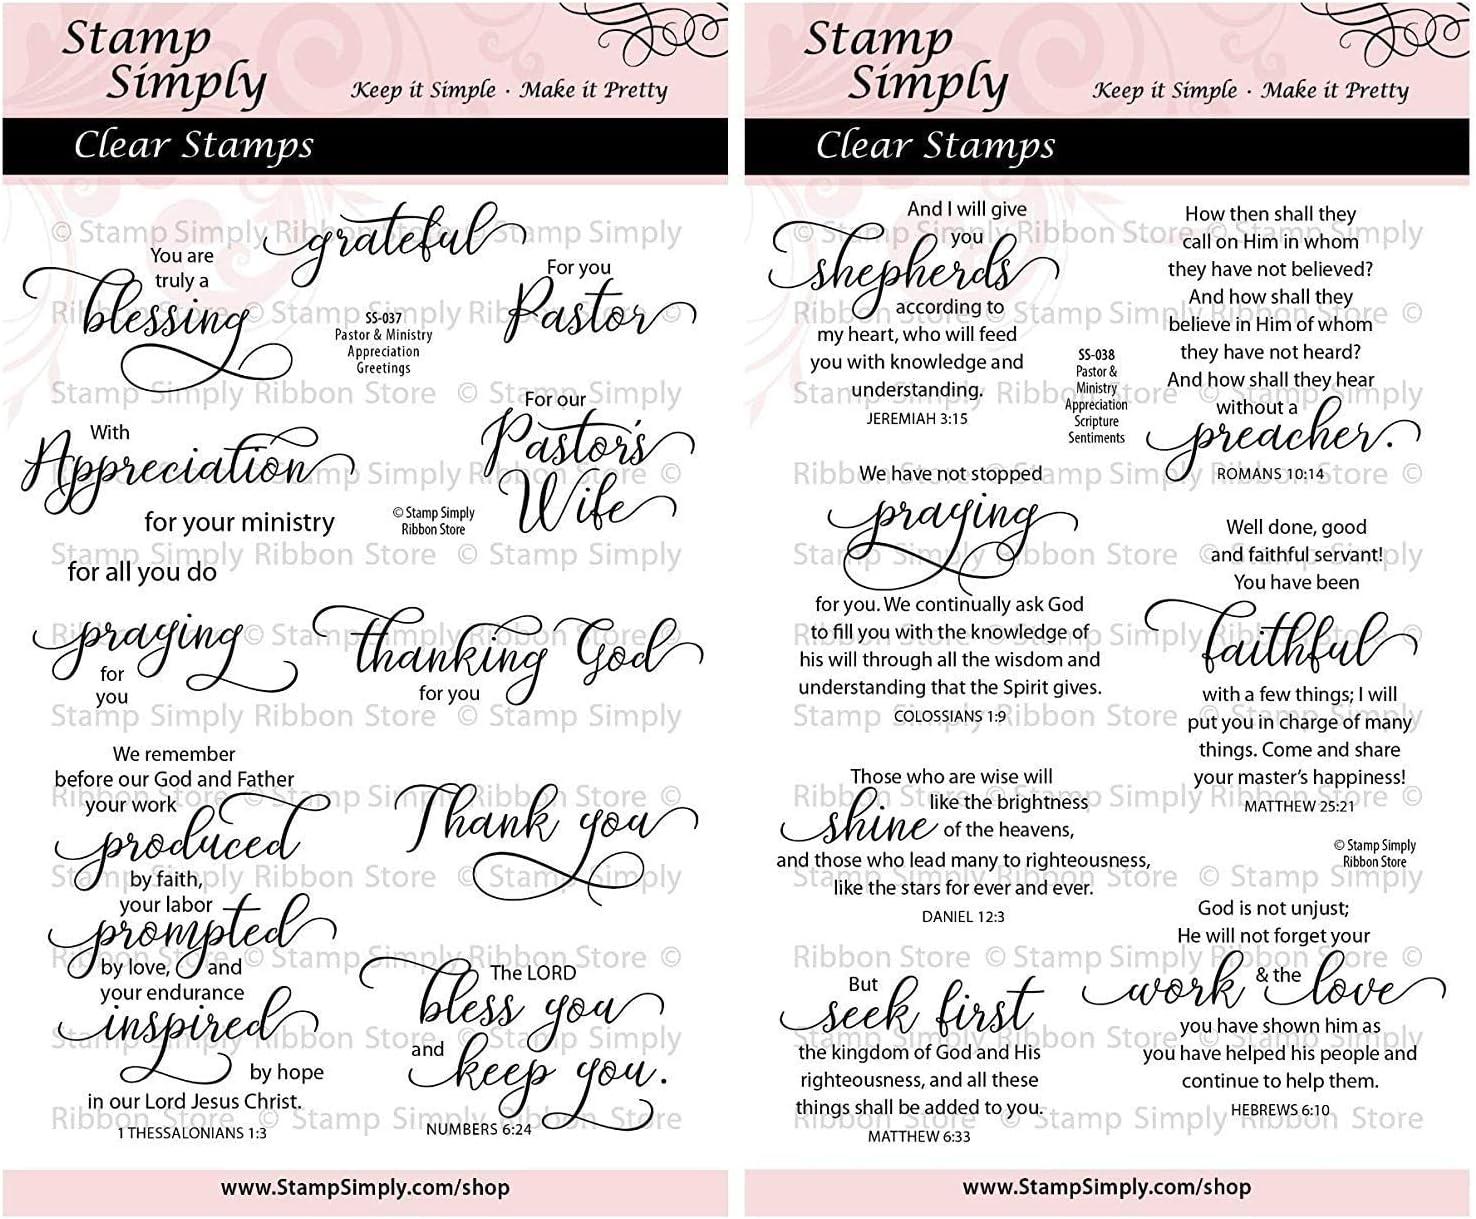 Stamp
Simply
Keep it Simple · Make it Pretty
Clear Stamps
grateful
You are
truly a
blessing
For you
Pastor
SS-037
Pastor & Ministry
Appreciation
Greetings
For our
Pastor's
Wife
With
Appreciation
for your ministry
© Stamp Simply
Ribbon Store
for all you do
praying
for
you
thanking God
for you
We remember
before our God and Father
your work
produced
by faith,
your labor
prompted
by love, and
your endurance
inspired
by hope
in our Lord Jesus Christ.
1 THESSALONIANS 1:3
Thank you
The LORD
bless you
and
keep you.
NUMBERS 6:24
www.StampSimply.com/shop
Stamp
Simply
Keep it Simple · Make it Pretty
Clear Stamps
And I will give
you
shepherds
according to
my heart, who will feed
you with knowledge and
understanding.
JEREMIAH 3:15
How then shall they
call on Him in whom
they have not believed?
And how shall they
believe in Him of whom
they have not heard?
And how shall they hear
without a
preacher.
ROMANS 10:14
SS-038
Pastor &
Ministry
Appreciation
Scripture
Sentiments
We have not stopped
praying
for you. We continually ask God
to fill you with the knowledge of
his will through all the wisdom and
understanding that the Spirit gives.
COLOSSIANS 1:9
Well done, good
and faithful servant!
You have been
faithful
with a few things; I will
put you in charge of many
things. Come and share
your master's happiness!
MATTHEW 25:21
Those who are wise will
like the brightness
shine of the heavens,
and those who lead many to righteousness,
like the stars for ever and ever.
DANIEL 12:3
© Stamp Simply
Ribbon Store
God is not unjust;
He will not forget your
work & the love
you have shown him as
you have helped his people and
continue to help them.
HEBREWS 6:10
But
seek first
the kingdom of God and His
righteousness, and all these
things shall be added to you.
MATTHEW 6:33
www.StampSimply.com/shop